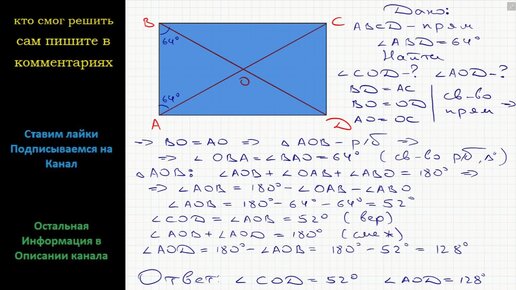 кто смог решить
сам пишите в
комментариях
Ставим лайки
Подписываемся на
Канал
Остальная
Информация в
Описании канала
B
C
64°
O
64°
A
D
Дано:
ABCD - прям
∠ABD = 64°
Найти
∠COD - ? ∠AOD - ?
BD = AC
BO = OD
AO = OC
св-во
прям ⇒
⇒ BO = AO ⇒ △AOB - р/б ⇒
⇒ ∠OBA = ∠BAO = 64° (св-во р/б △)
△AOB: ∠AOB + ∠OAB + ∠ABO = 180° ⇒
⇒ ∠AOB = 180° - ∠OAB - ∠ABO
∠AOB = 180° - 64° - 64° = 52°
∠COD = ∠AOB = 52° (вер)
∠AOB + ∠AOD = 180° (смеж)
∠AOD = 180° - ∠AOB = 180° - 52° = 128°
Ответ: ∠COD = 52° ∠AOD = 128°